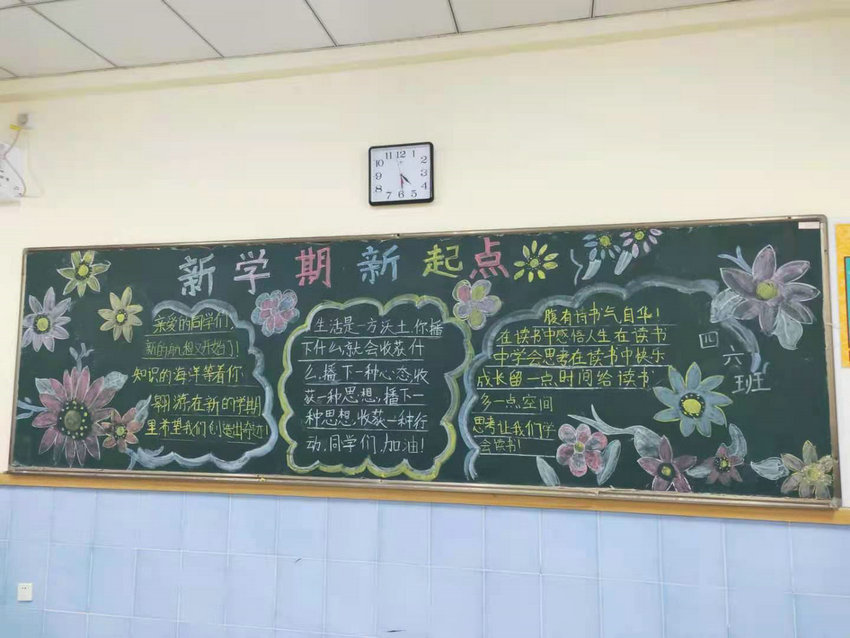 12
11
1
10
2
9
3
8
4
7
6
5
新学期新起点
亲爱的同学们,
新的航程又开始了!
知识的海洋等着你
翱游在新的学期
里希望我们创造出奇迹!
生活是一方沃土,你播
下什么,就会收获什
么,播下一种心态,收
获一种思想,播下一
种思想,收获一种行
动,同学们,加油!
腹有诗书气自华!
在读书中感悟人生在读书
中学会思考在读书中快乐
成长留一点时间给读书
多一点空间
思考让我们学
会读书!
四六班